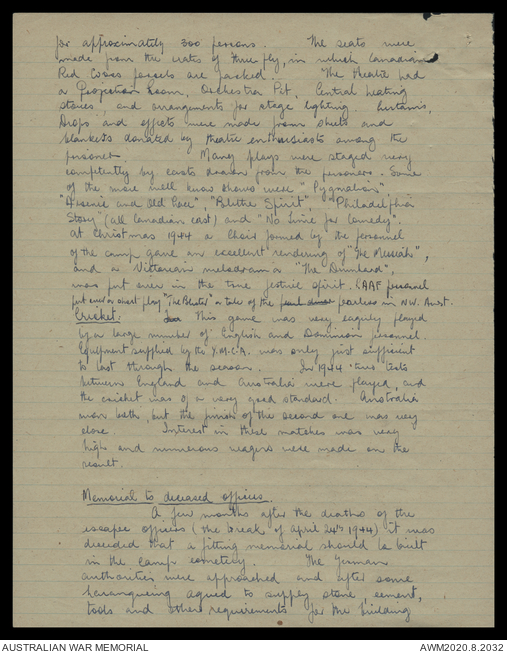 for approximately 300 persons. The seats were
made from the crates of three ply, in which Canadian
Red Cross parcels are packed. The theatre had
a Projection Room, Orchestra Pit, Central heating
stoves, and arrangements for stage lighting. Curtains,
drops and effects were made from sheets and
blankets donated by theatre enthusiasts among the
prisoners. Many plays were staged very
competently by casts drawn from the prisoners. Some
of the more well know shows were "Pygmalion",
"Arsenic and Old Lace", "Blithe Spirit", "Philadelphia
Story" (all Canadian cast) and "No Time for Comedy".
At Christmas 1944 a Choir formed by the personnel
of the camp gave an excellent rendering of "The Messiah",
and a Victorian melodrama "The Drunkard",
was put over in the true festive spirit. RAAF personnel
put over a short play "The" a tale of the pearlers in N.W. Aust.
Cricket. This game was very eagerly played
by a large number of English and Dominion personnel.
Equipment supplied by the Y.M.C.A. was only just sufficient
to last through the season. In 1944 two tests
between England and Australia were played, and
the cricket was of a very good standard. Australia
won both, but the finish of the second one was very
close. Interest in these matches was very
high and numerous wagers were made on the
result.
Memorial to deceased officers.
A few months after the deaths of the
escapee officers (the break of April 24th 1944) it was
decided that a fitting memorial should be built
in the camp cemetery. The German
authorities were approached and after some
haranguing agreed to supply stone, cement,
tools and other requirements for the building
AUSTRALIAN WAR MEMORIAL
AWM2020.8.2032